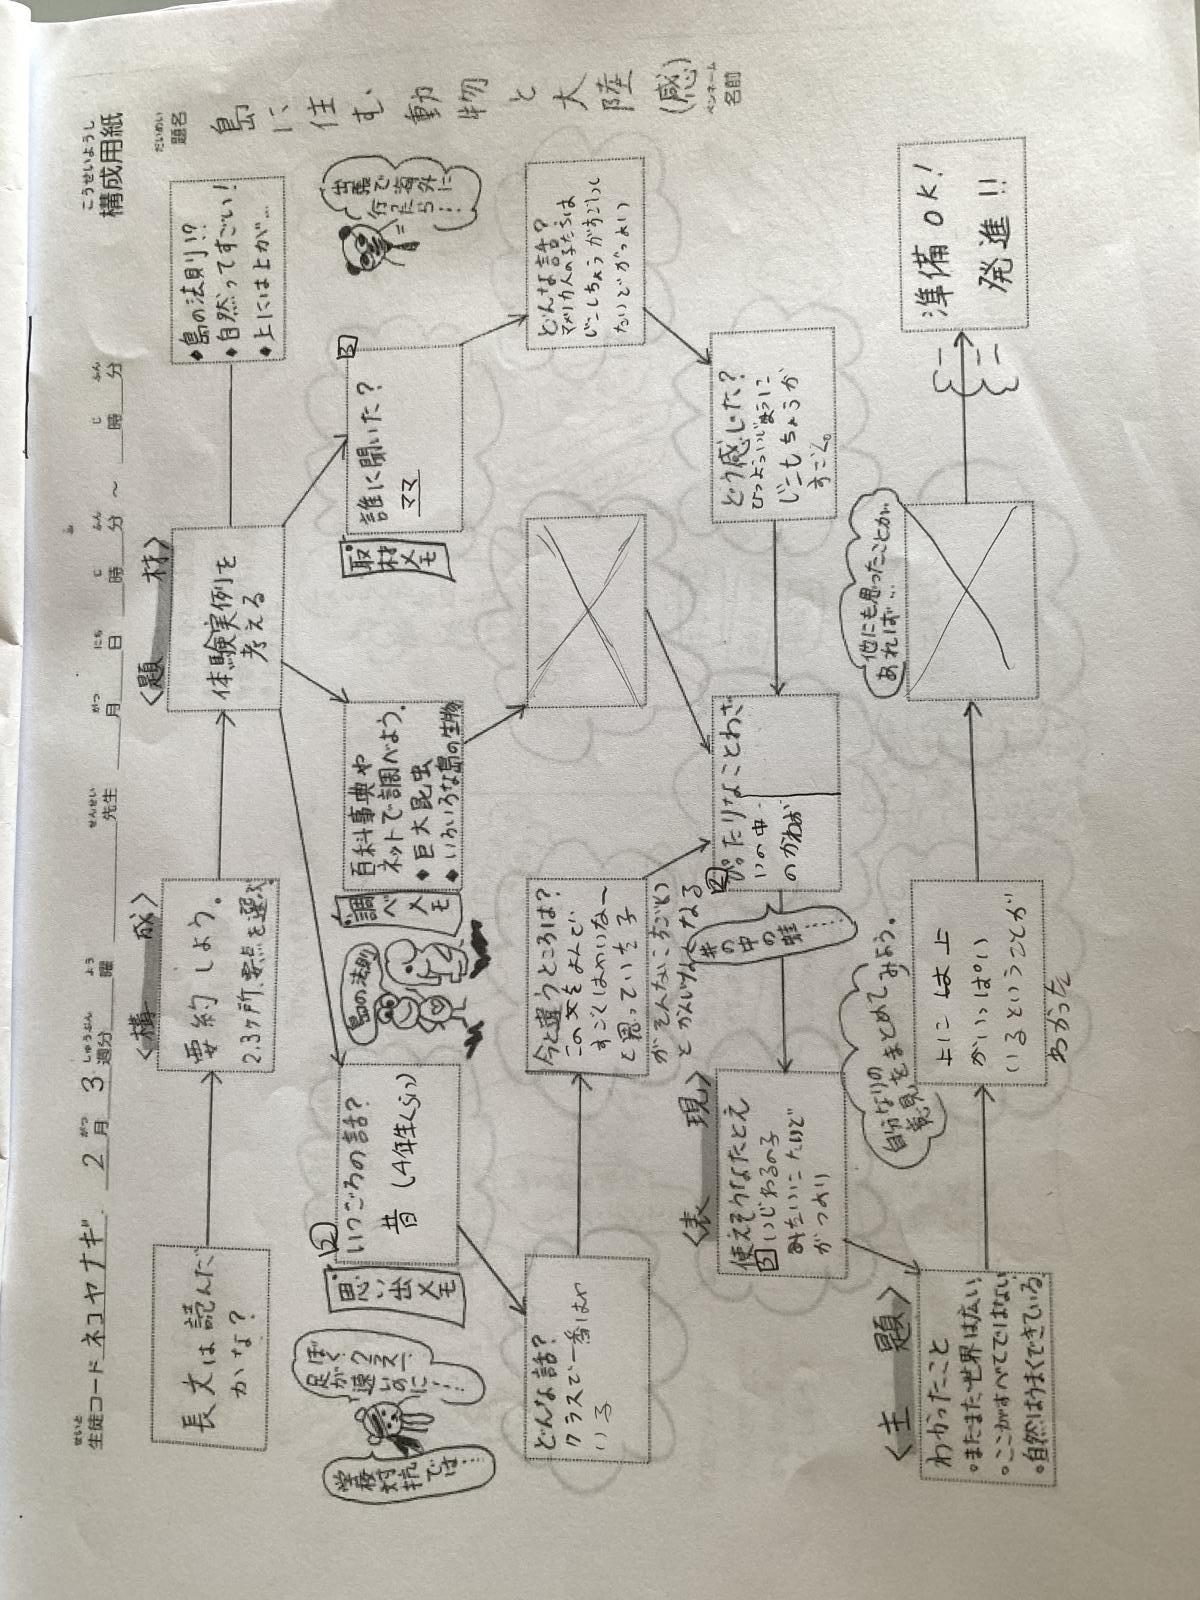 こうせいようし
構成用紙
せいと
生徒コード ネコヤナギ 2月 3週分 曜 先生 月 日 時 分 ～ 時 分
がつ しゅうぶん よう せんせい がつ にち じ ふん じ ふん
だいめい
題名
島に住む動物と大陸(感)
ペンネーム
名前
<構 成>
長文は読んだ
かな？
要約しよう。
2.3ヶ所、要点を選ぶ
<題 材>
体験実例を
考える
◆島の法則!?
◆自然ってすごい!
◆上には上が…
学校
対抗
では……
ぼく、
足が
クラス1
速いのに……
思い出メモ
2
いつごろの話？
昔 (4年生くらい)
島の法則
調べメモ
百科事典や
ネットで調べよう。
◆巨大昆虫
◆いろいろな島の生物
取材メモ
3
誰に聞いた？
ママ
出張で
海外に
行ったら……
どんな話？
クラスで一番はや
いる
今と違うところは？
この文をよんで
すごくはやいな〜
と思っていた子
がそんなにすごい
どんな話？
アメリカ人の子たちは
じこしちょうがすごい
<表 現>
使えそうなたとえ
3
いじわるの子
みたいに
がつより
井の中の蛙……
ぴったりなことわざ
いの中
のかわず
どう感じた？
ひつよういじょうに
じこしちょうが
すごい。
<主 題>
わかったこと
◦まだまだ世界は広い
◦ここがすべてではない
◦自然はうまくできている
自分なりの
意見をまとめてみよう。
上には上
がいっぱい
いるということが
わかった
他にも思ったことが
あれば…
準備OK!
発進!!